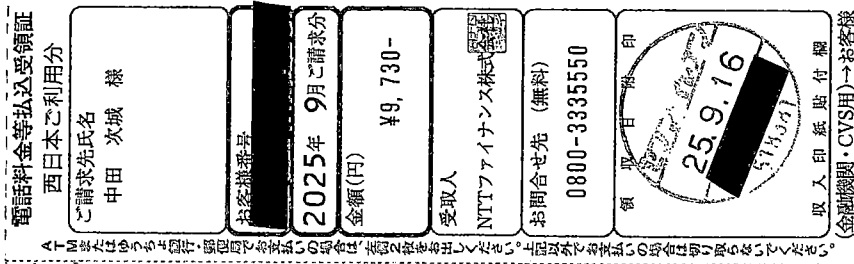 電話料金等払込受領証
西日本ご利用分
ご請求先氏名
中田 次城 様
お客様番号
2025年 9月ご請求分
金額(円)
¥9,730-
受取人
NTTファイナンス株式会社
お問合せ先 (無料)
0800-3335550
領収日附印
25.9.16
収入印紙貼付欄
(金融機関・CVS用)→お客様
ATMまたはゆうちょ銀行・郵便局でお支払いの場合は、左側2枚をお出しください。上記以外でお支払いの場合は切り取らないでください。